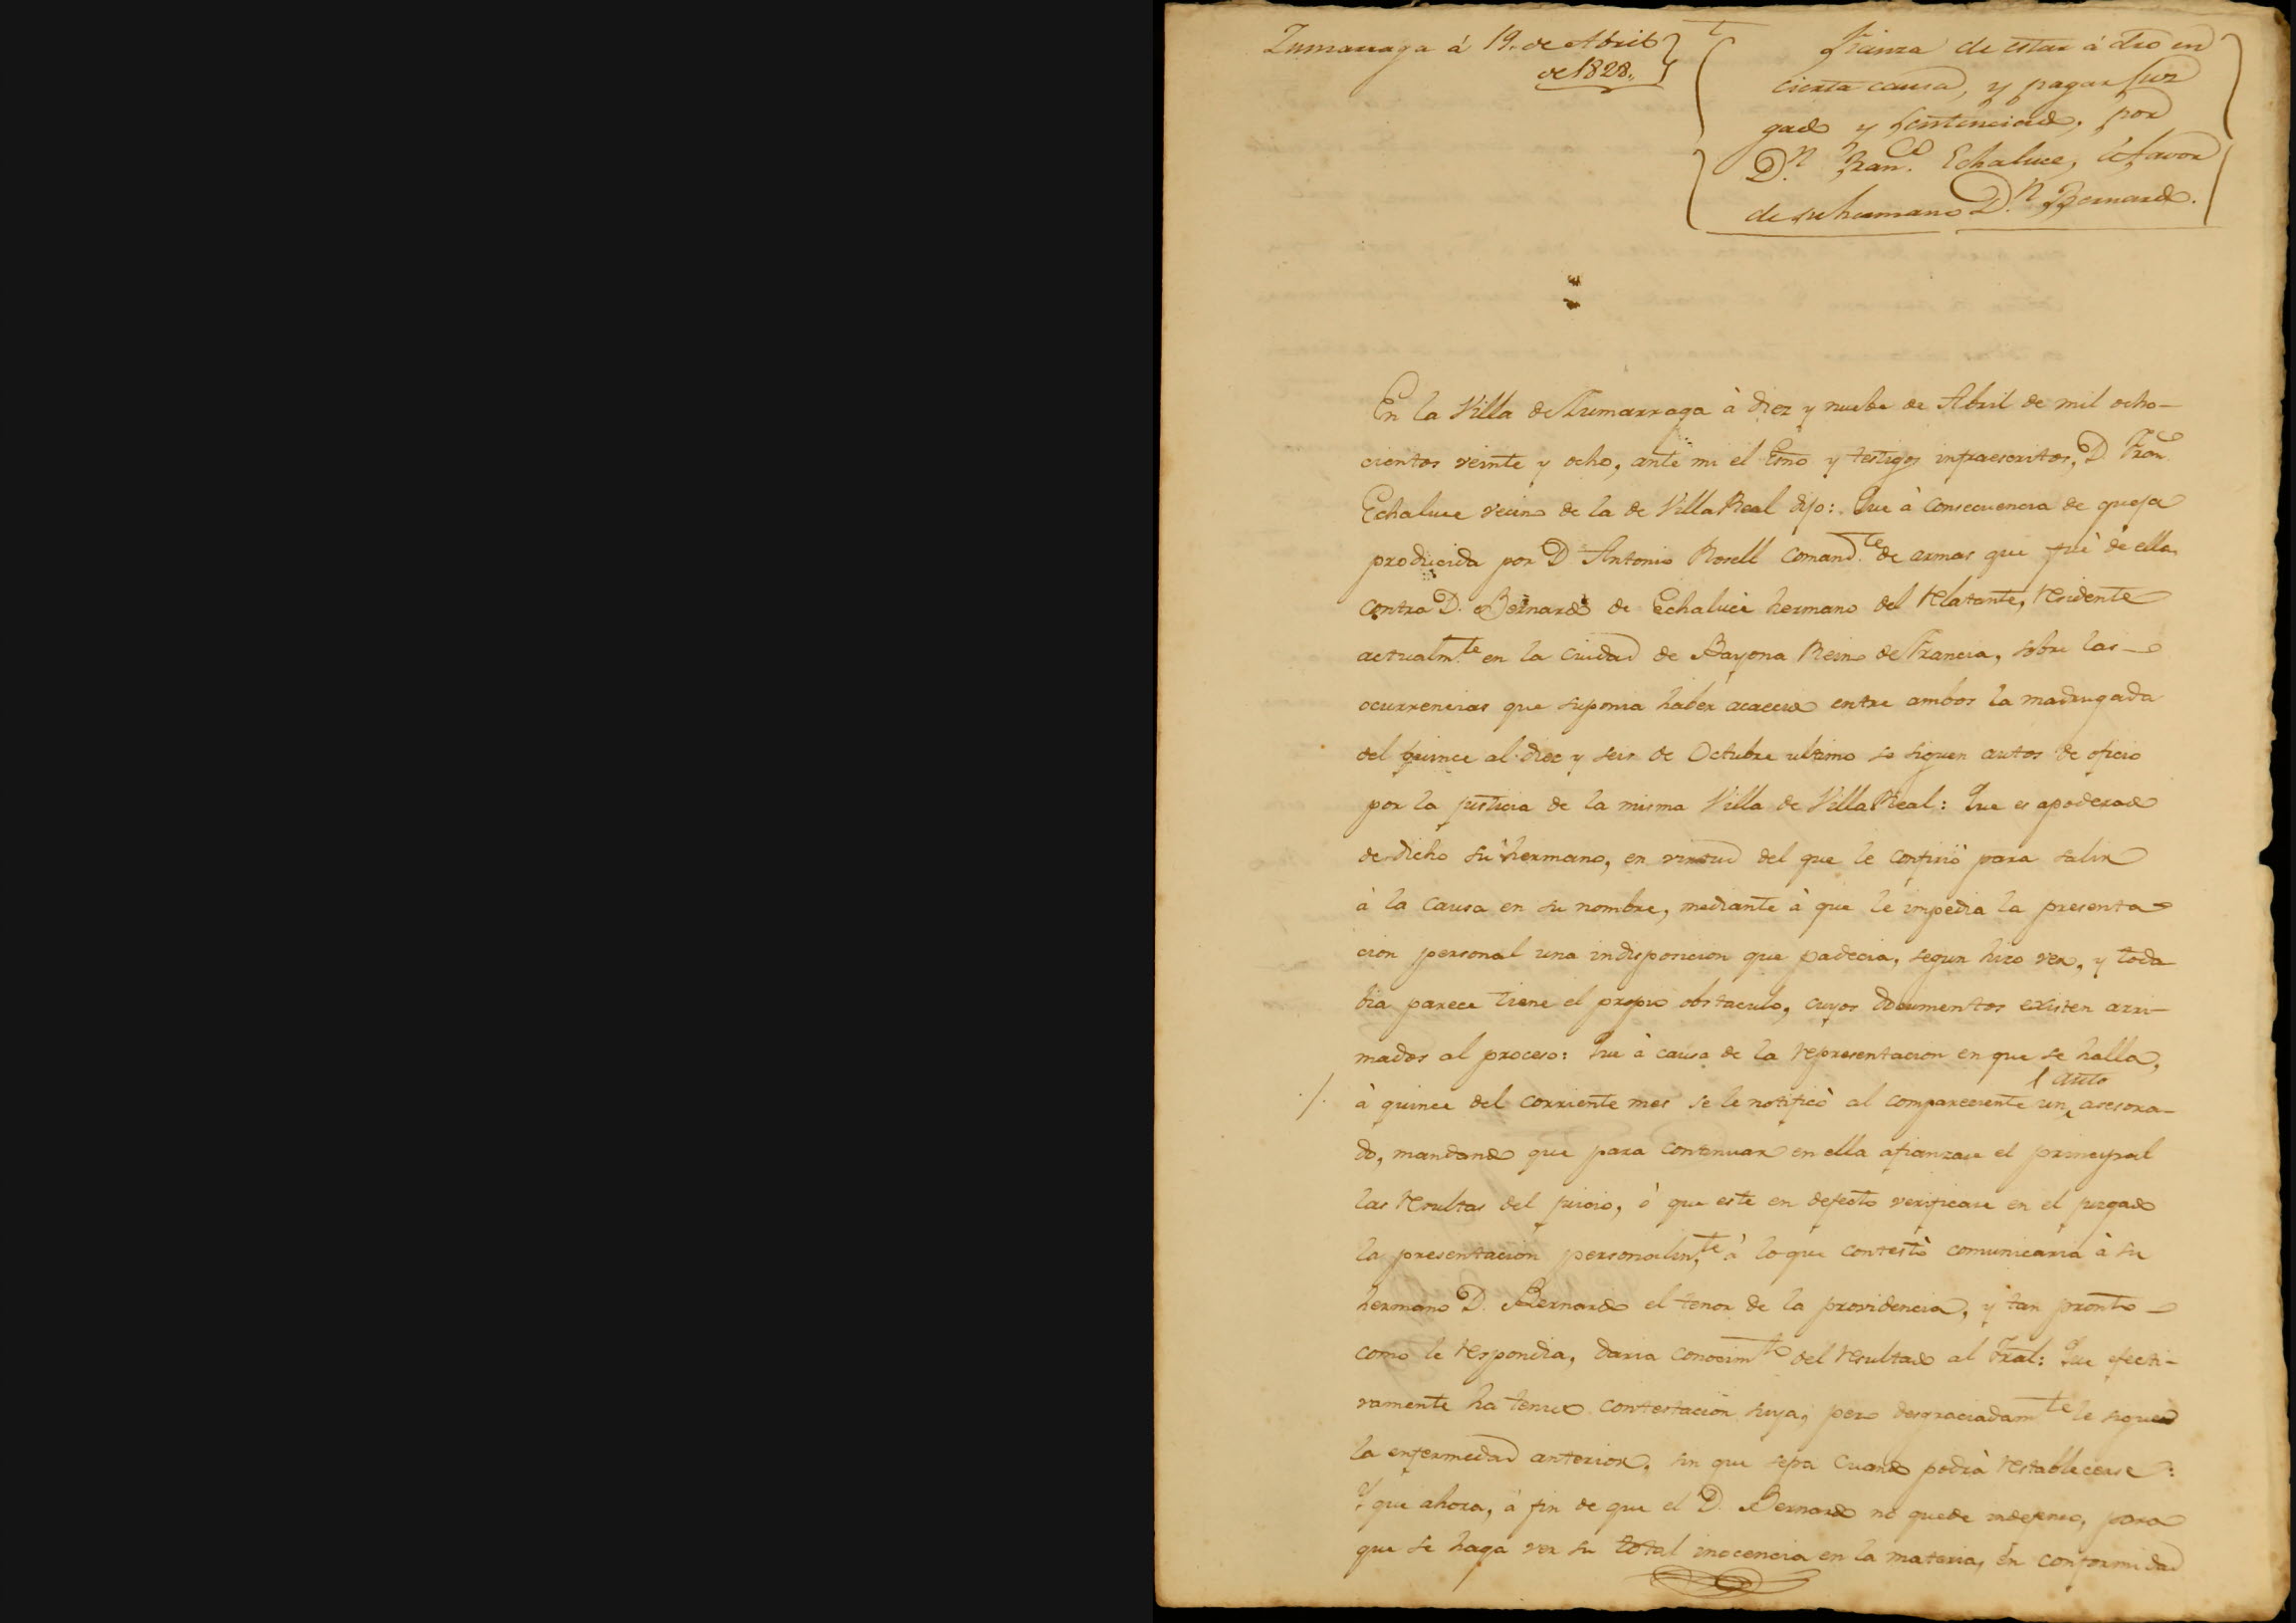 Zumarraga á 19. de Abril
de 1828.
Fianza de estar á dro en
cierta causa, y pagar Juz
gado y Sentenciado, por
D.n Fran.co Echaluce, á favor
de su hermano D.n Bernardo.
En la Villa de Zumarraga à diez y nuebe de Abril de mil ocho-
cientos veinte y ocho, ante mi el Esno y testigos infraescritos, D. Fran.co
Echaluce vecino de la de Villa Real dijo: Que à consecuencia de queja
producida por D Antonio Rosell Comand.te de armas que fuè de ella
contra D. Bernardo de Echaluce hermano del relatante, residente
actualm.te en la Ciudad de Bayona Reino de Francia, sobre las
ocurrencias que suponia haber acaecido entre ambos la madrugada
del quince al diez y seis de Octubre ultimo se siguen autos de oficio
por la justicia de la misma Villa de Villa Real: Que es apoderado
de dicho su hermano, en virtud del que le confirió para salir
à la causa en su nombre, mediante à que le impedia la presenta
cion personal una indisposicion que padecia, segun hizo ver, y toda
bia parece tiene el propio obstaculo, cuyos documentos existen arri-
mados al proceso: Que à causa de la representacion en que se halla,
auto
à quince del corriente mes se le notificò al compareciente un asesora-
do, mandando que para continuar en ella afianzase el principal
las resultas del juicio, ò que este en defecto verificase en el juzgado
la presentacion personalm.te à lo que contestò comunicaria à su
hermano D. Bernardo el tenor de la providencia, y tan pronto
como le respondia, daria conocim.to del resultado al Tral: Que efecti-
vamente ha tenido contestacion suya, pero desgraciadam.te le sigue
la enfermedad anterior, sin que sepa cuando podrà restablecerse:
Y que ahora, à fin de que el D. Bernardo no quede indefenso, para
que se haga ver su total inocencia en la materia, en conformidad